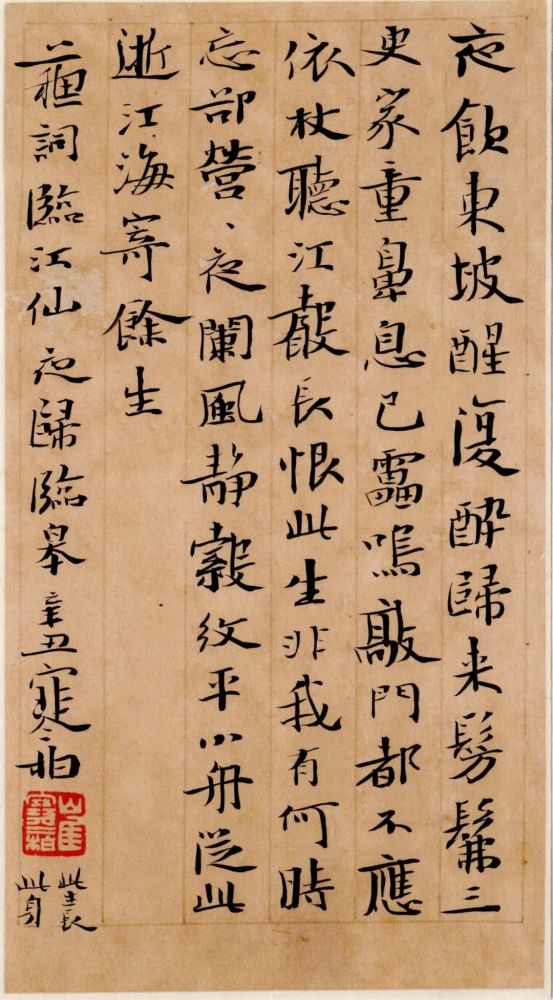 夜飲東坡醒復醉歸来髣髴三
更家童鼻息已靁鳴敲門都不應
依杖聽江聲長恨此生非我有何時
忘卻營、夜闌風静縠紋平小舟從此
逝江海寄餘生
蘇詞臨江仙夜歸臨皋辛丑寒
此身